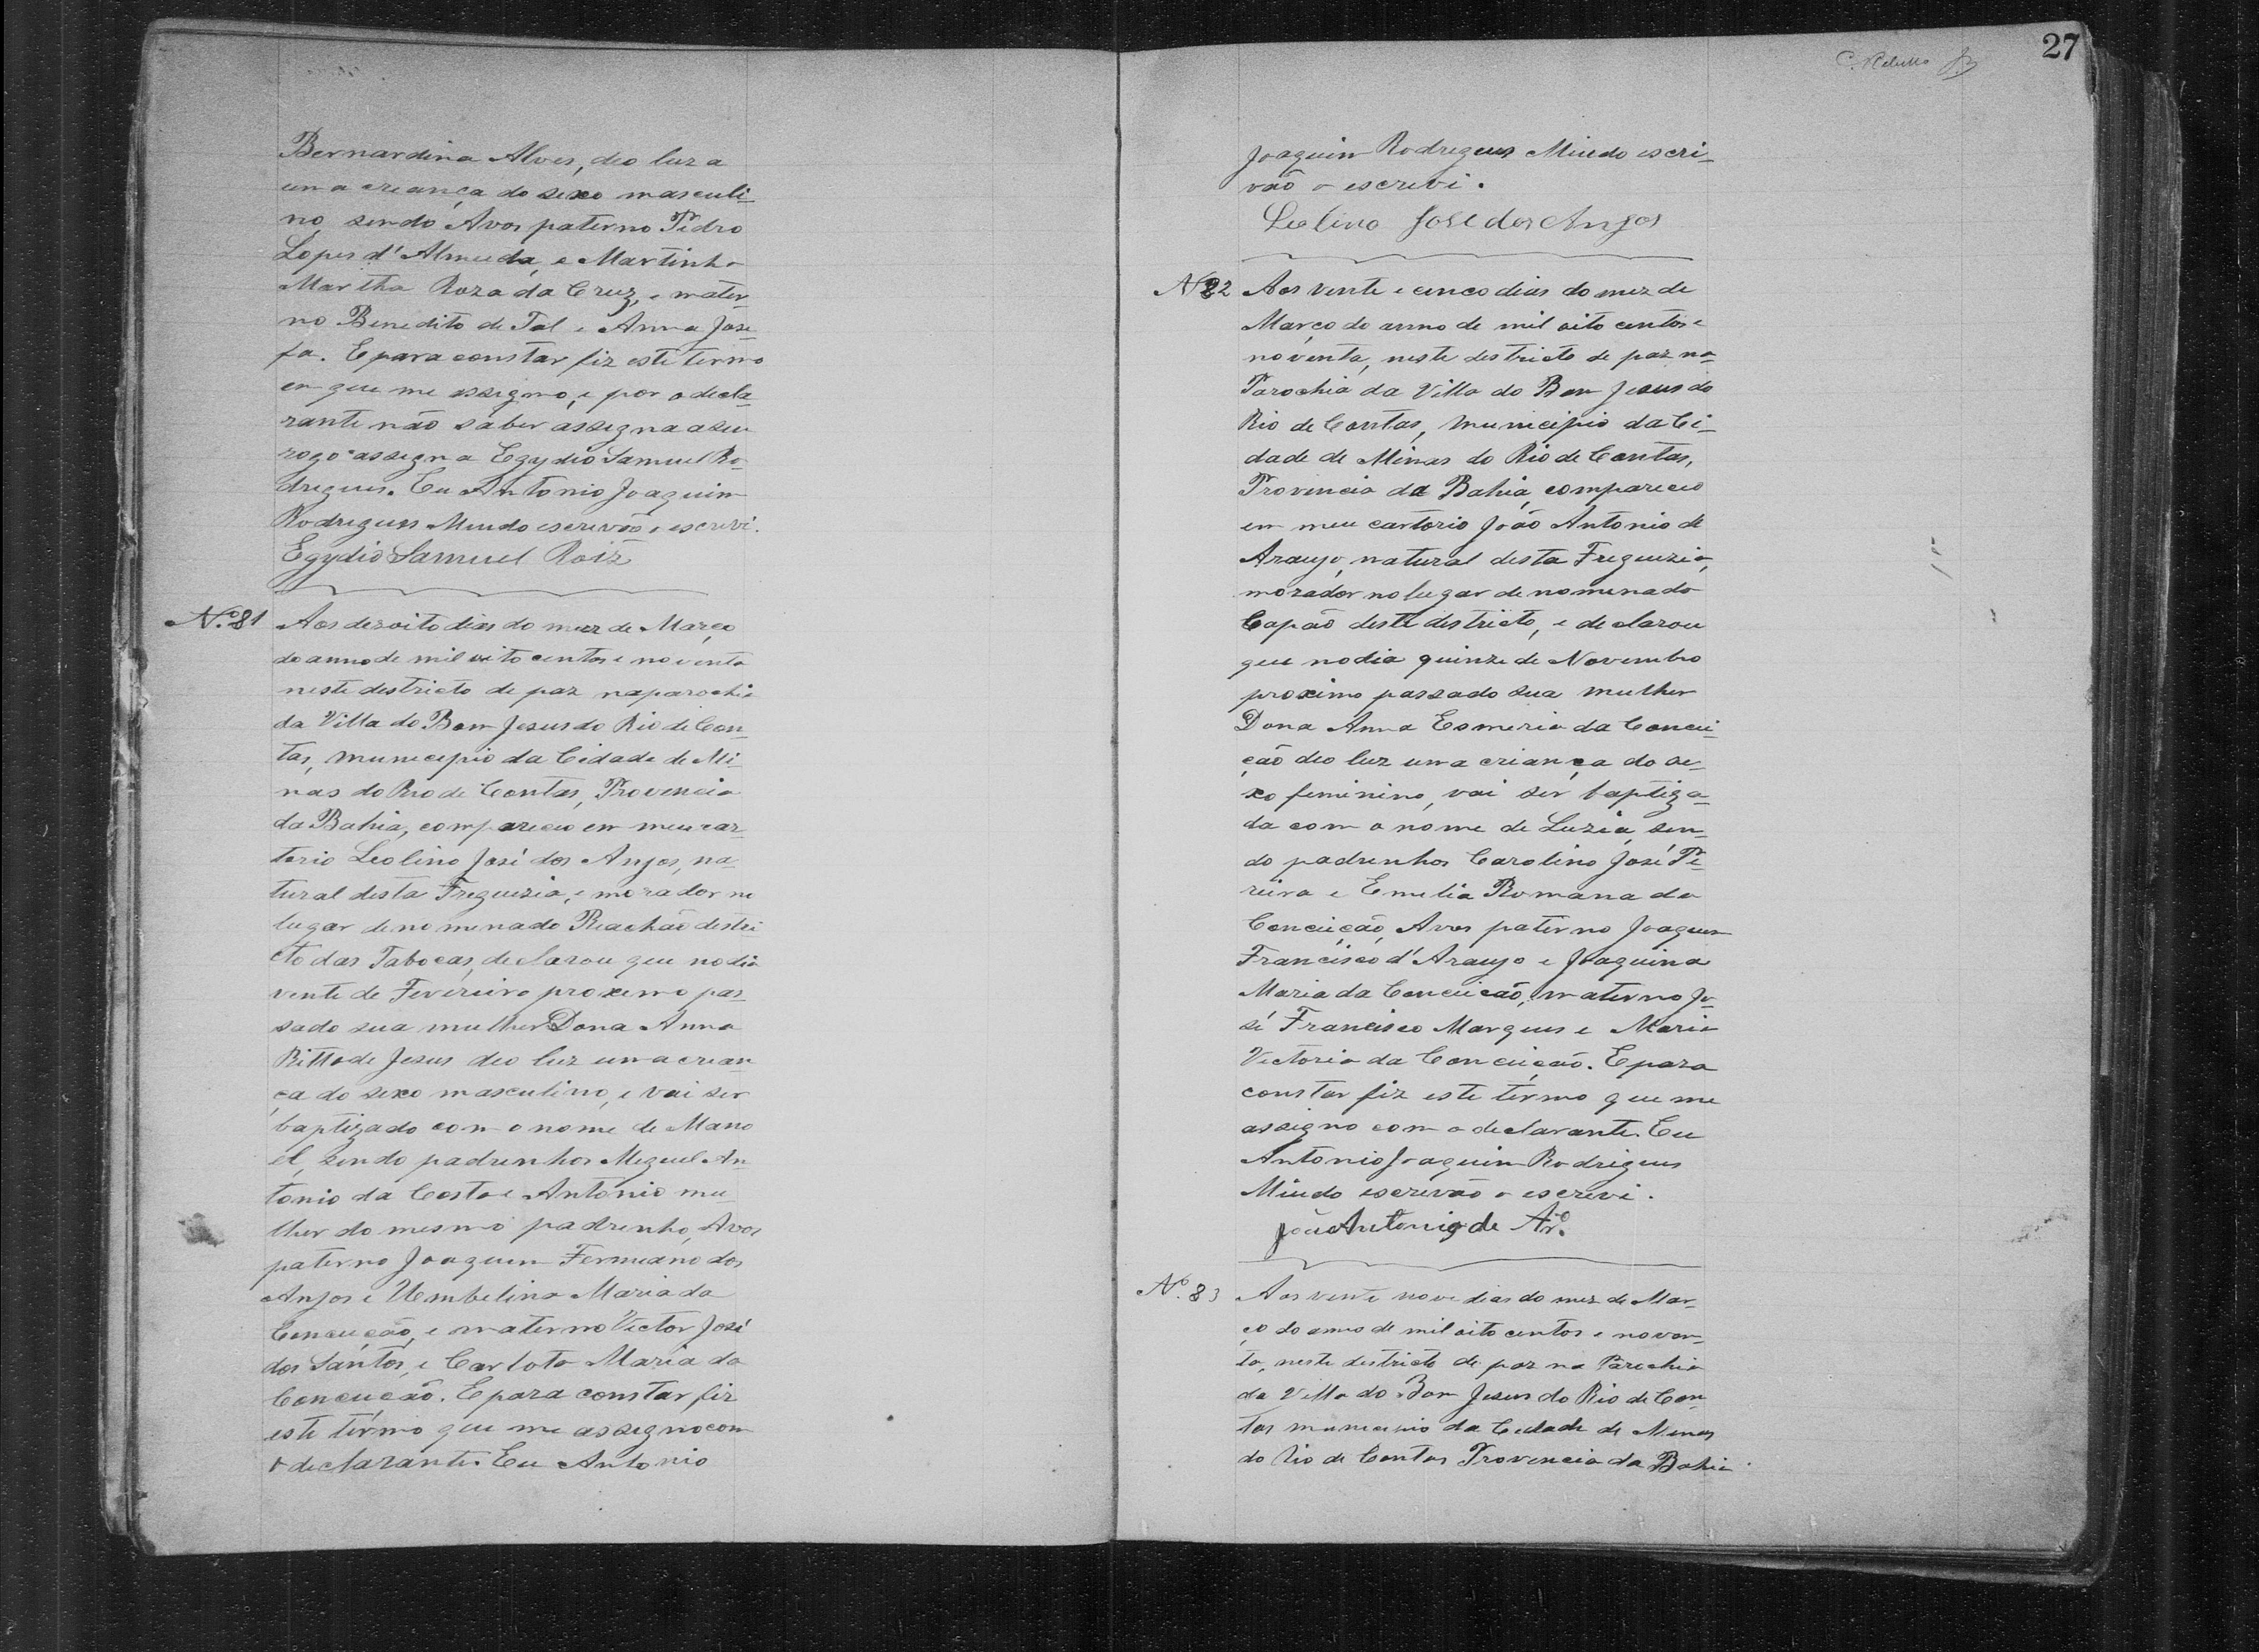 Bernardina Alves, deo luz a
uma creança do sexo masculi-
no, sendo Avos paterno Pedro
Lopes d'Almeida, e Martinha
Martha Roza da Cruz, e mater-
no Benedito de Tal e Anna Jose-
fa. E para constar fiz este termo
em que me assigno, e por o decla-
rante não saber assegna a seu
rogo assegna Egydio Samuel Ro-
dregues. Eu Antonio Joaquim
Rodregues Miudo escrevão o escrevi.
Egydio Samuel Roiz
N.º 81 Aos dezoito dias do mez de Março
do anno de mil oito centos e noventa
neste destricto de paz na parochia
da Villa do Bom Jesus do Rio de Con-
tas, municepio da Cidade de Mi-
nas do Rio de Contas, Provencia
da Bahia, compareceo em meu car-
torio Leolino José dos Anjos, na-
tural desta Freguezia, e morador no
lugar denomenado Reachão destri-
cto das Tabocas, declarou que no dia
vente de Fevereiro proxemo pas-
sado sua mulher Dona Anna
Ritta de Jesus deo luz uma crean-
ça do sexo masculino, e vai ser
baptizado com o nome de Mano-
el, sendo padrenhos Meguel An-
tonio da Costa e Antonia mu-
lher do mesmo padrenho, Avos
paterno Joaquim Fermiano dos
Anjos e Uembelina Maria da
Conceição, e materno Victor José
dos Santos, e Carlota Maria da
Conceição. E para constar fiz
este termo que me assegno com
o declarante. Eu Antonio
27
Joaquim Rodregues Miudo escri-
vão o escrevi.
Leolino José dos Anjos
N 82 Aos vente e cenco dias do mez de
Março do anno de mil oito centos e
noventa, neste destricto de paz na
Parochia da Villa do Bom Jesus do
Rio de Contas, municipio da Ci-
dade de Minas do Rio de Contas,
Provencia da Bahia, compareceo
em meu cartorio João Antonio de
Araujo, natural desta Freguezia,
morador no lugar denomenado
Capão deste destricto, e declarou
que no dia quinze de Novembro
proximo passado sua mulher
Dona Anna Esmeria da Concei-
ção deo luz uma criança do se-
xo feminino, vai ser baptiza-
da com o nome de Luzia, sen-
do padrenhos Carolino José Pe-
reira e Emelia Romana da
Conceição, Avos paterno Joaquim
Francisco d'Araujo e Joaquina
Maria da Conceição, materno Jo-
sé Francisco Marques e Maria
Victoria da Conceição. E para
constar fiz este termo que me
assigno com o declarante. Eu
Antonio Joaquim Rodrigues
Miudo escrevão o escrevi.
João Antonio de Ar.º
N.º 83 Aos vente nove dias do mez de Mar-
ço do anno de mil oito centos e noven-
ta, neste destricto de paz na Parochia
da Villa do Bom Jesus do Rio de Con-
tas municipio da Cidade de Minas
do Rio de Contas Provencia da Bahia